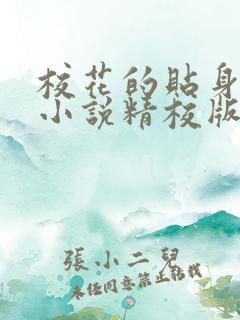 校花的貼身
小說精校版
張小二兒
未任同意禁止轉載